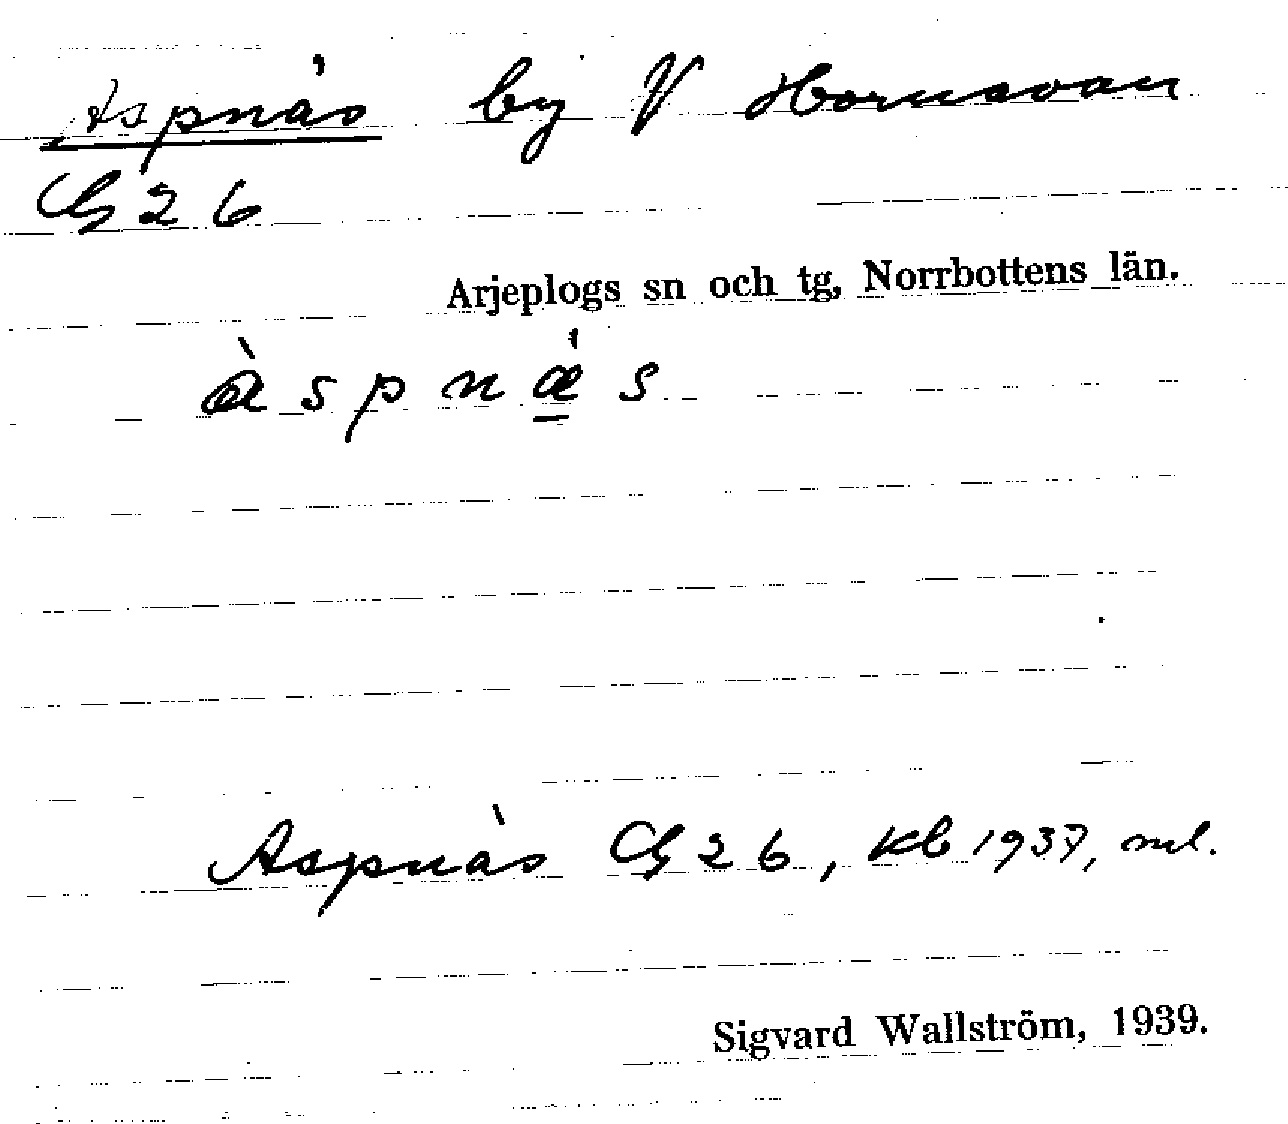 Aspnäs by V Hornavan
G 2 b
Arjeplogs sn och tg, Norrbottens län.
à s p n ǽ̲ s
Aspnäs G 2 b, kb 1937, ml.
Sigvard Wallström, 1939.